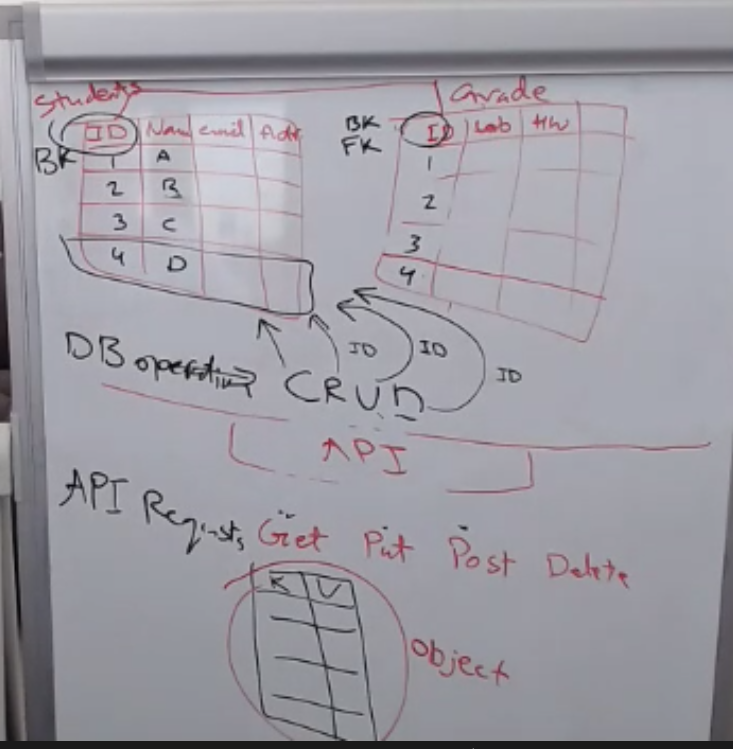 Students
ID Nam email Adr
BK
1 A
2 B
3 C
4 D
Grade
BK
FK
ID Lab HW
1
2
3
4
DB operations
CRUD
ID
ID
ID
API
API Requests Get Put Post Delete
K V
Object